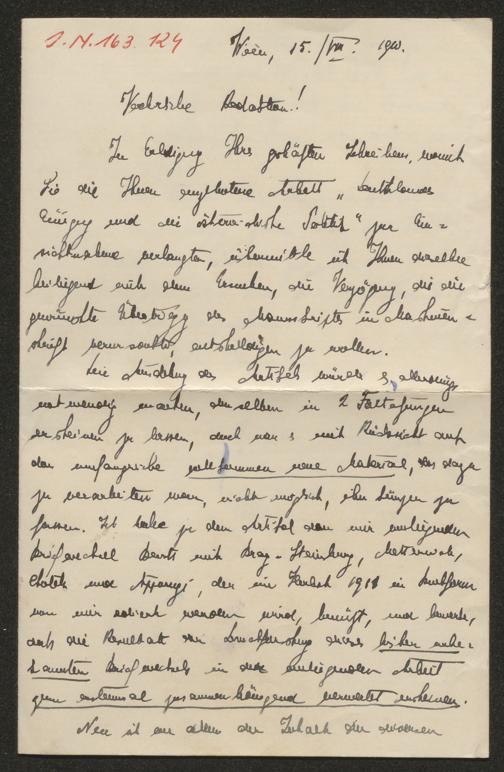 J.N. 163.124
Wien, 15./VIII. 190.
Verehrliche Redaktion!
In Erledigung Ihres geschätzten Schreibens, womit
Sie die Ihnen angebotene Arbeit „Deutschlands
Einigung und die österreichische Politik" zur Ein=
sichtnahme verlangten, übermittle ich Ihnen dieselbe
beiliegend mit dem Ersuchen, die Verzögerung, die die
gewünschte Übertragung des Manuskriptes in Maschinen=
schrift verursachte, entschuldigen zu wollen.
Die Ausdehnung des Artikels würde es allerdings
notwendig machen, denselben in 2 Fortsetzungen
erscheinen zu lassen, doch war es mit Rücksicht auf
das umfangreiche vollkommen neue Material, das dazu
zu verarbeiten war, nicht möglich, ihn kürzer zu
fassen. Ich habe zu dem Artikel den mir vorliegenden
Briefwechsel Beusts mit Bray-Steinburg, Metternich,
Chotek und Apponyi, der im Herbst 1911 in Buchform
von mir ediert werden wird, benützt, und bemerke,
daß die Resultate der Durchforschung dieses bisher unbe=
kannten Briefwechsels in der vorliegenden Arbeit
zum erstenmal zusammenhängend verwertet erscheinen.
Neu ist vor allem der Inhalt der